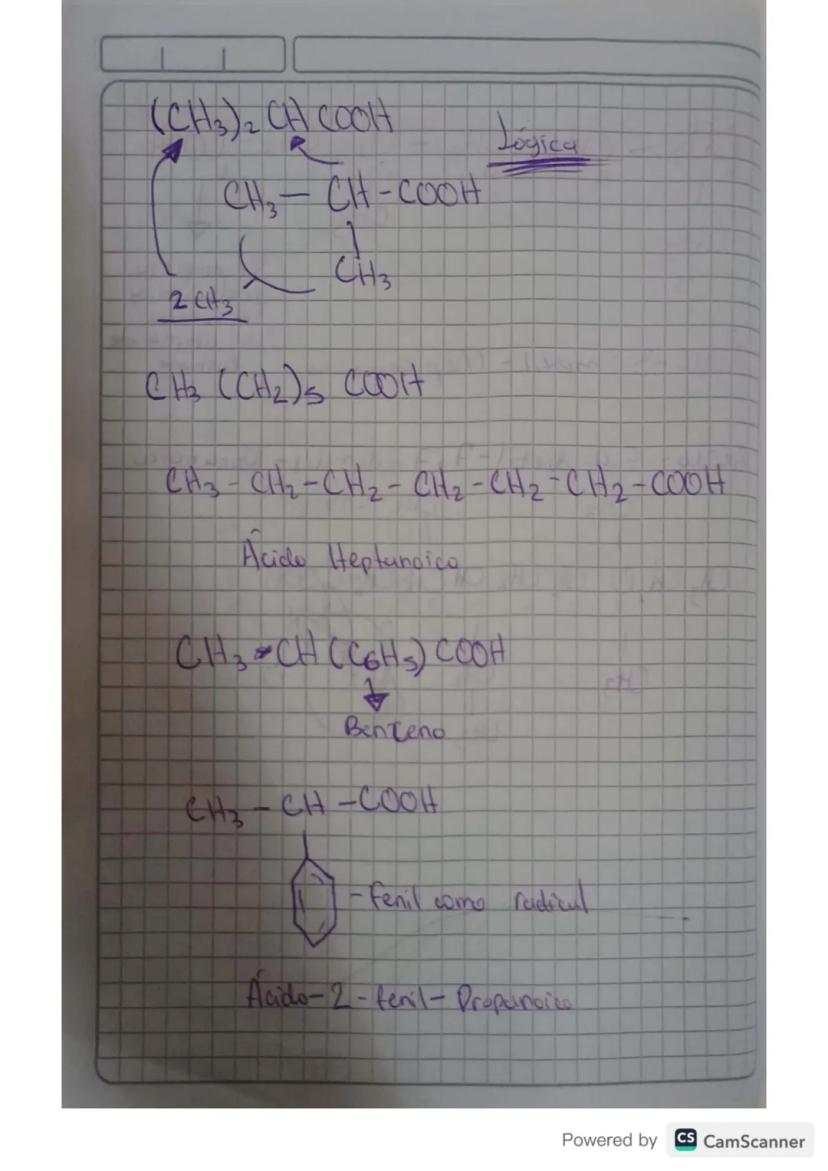 (CH₃)₂ CH COOH
Lógica
CH₃ – CH - COOH
CH₃
2 CH₃
CH₃ (CH₂)₅ COOH
CH₃ - CH₂ - CH₂ - CH₂ - CH₂ - CH₂ - COOH
Ácido Heptanoico
CH₃ - CH (C₆H₅) COOH
Benceno
CH₃ - CH - COOH
- fenil como radical
Ácido - 2 - fenil - Propanoico
Powered by CS CamScanner